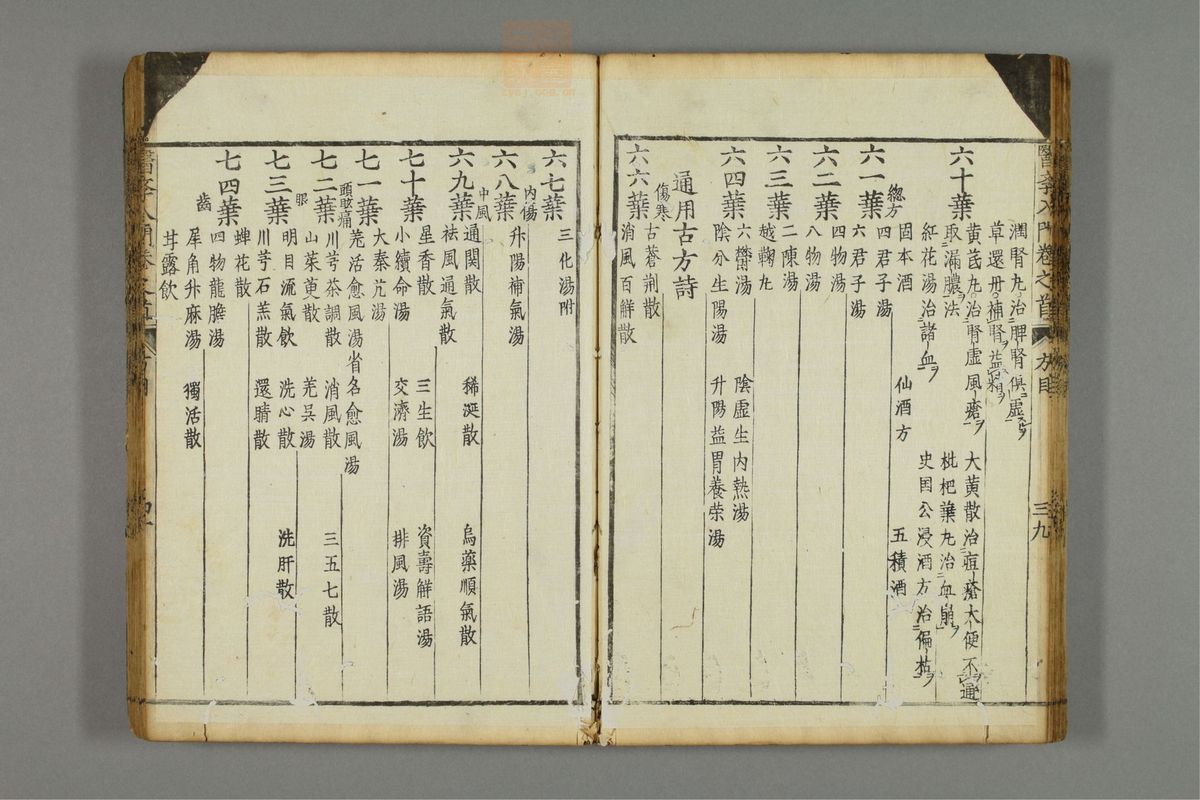 醫學入門卷之首
方目
三九
潤腎丸治脾腎俱虛
草還丹補腎益精
黄芪丸治腎虛風瘡 大黄散治痘瘡大便不通
六十葉 取漏膿法 枇杷葉丸治血崩
紅花湯治諸血 史囯公浸酒方治偏枯
總方 固本酒 仙酒方 五積酒
六一葉 四君子湯
六君子湯
六二葉 四物湯
八物湯
六三葉 二陳湯
越鞠丸
六四葉 六鬱湯 陰虛生内熱湯
陰分生陽湯 升陽益胃養荣湯
通用古方詩
傷寒 古蒼荊散
六六葉 消風百解散
六七葉 三化湯附
内傷
六八葉 升陽補氣湯
中風 通関散 稀涎散 烏藥順氣散
六九葉 祛風通氣散
星香散 三生飲 資壽解語湯
七十葉 小續命湯 交濟湯 排風湯
大秦艽湯
七一葉 羌活愈風湯省名愈風湯
頭眩痛 川芎茶調散 消風散 三五七散
七二葉 山茱萸散 羌吳湯
眼 明目流氣飲 洗心散 洗肝散
七三葉 川芎石羔散 還睛散
蟬花散
七四葉 四物龍膽湯
齒 犀角升麻湯 獨活散
甘露飲